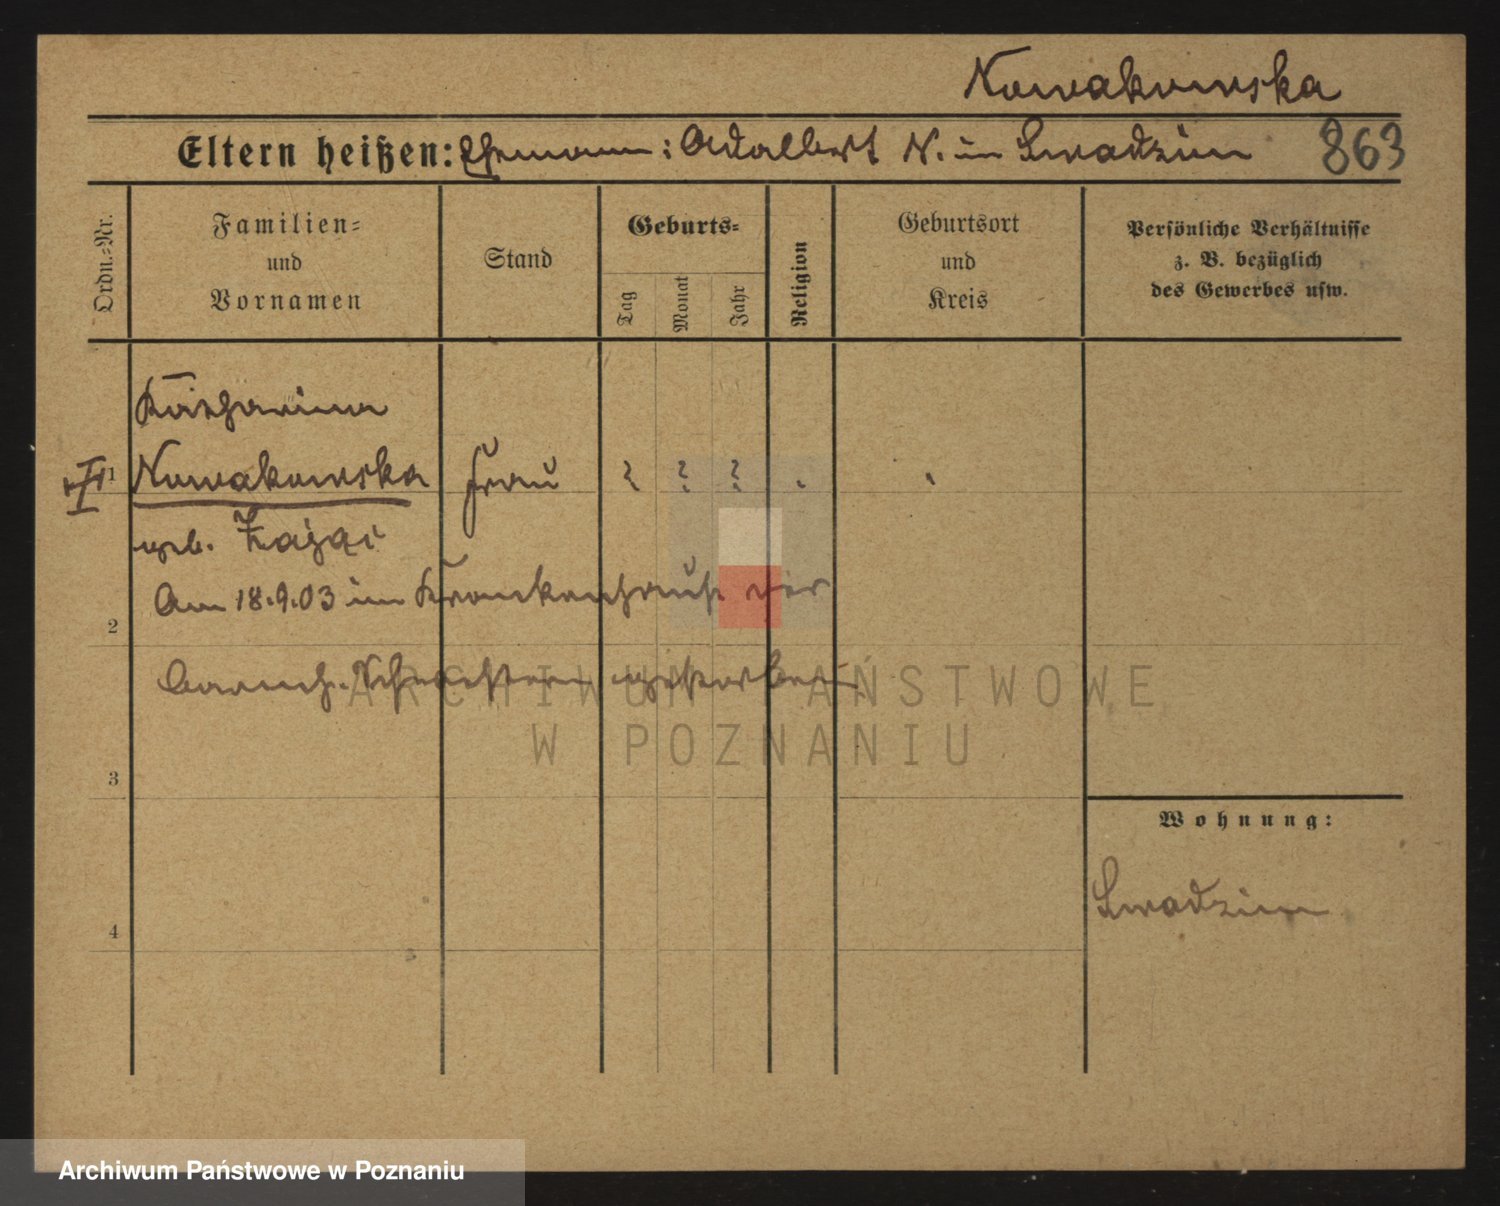 Nowakowska
Eltern heißen: Ehemann: Adalbert N. in Swadzim 863
Ordn.=Nr.
Familien=
und
Vornamen
Stand
Geburts=
Tag
Monat
Jahr
Religion
Geburtsort
und
Kreis
Persönliche Verhältnisse
z. B. bezüglich
des Gewerbes usw.
Katharina
1 Nowakowska Frau ? ? ?
geb. Zająć
Am 18.9.03 im Krankenhause der
2
barmh. Schwestern gestorben.
ARCHIWUM PAŃSTWOWE
W POZNANIU
3
Wohnung:
Swadzim
4
Archiwum Państwowe w Poznaniu